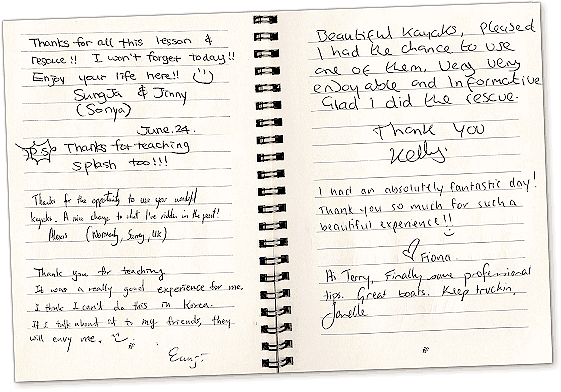 Thanks for all this lesson &
resouce!! I won't forget today!!
Enjoy your life here!!
SungJa & Jinny
(Sonya)
June. 24.
P.S Thanks for teaching
splash too!!!
Thanks for the opportunity to use your wonderful
kayaks. A nice change to what I've ridden in the past!
Alexis (Normandy, Surrey, UK)
Thank you for teaching.
It was a really good experience for me.
I think I can't do this in Korea.
If I talk about it to my friends, they
will envy me.
Eunji
Beautiful Kayaks, Pleased
I had the chance to use
one of them. Very very
enjoyable and Informative
Glad I did the rescue.
Thank You
Kelly.
I had an absolutely fantastic day!
Thank you so much for such a
beautiful experience!!
Fiona
Hi Terry, Finally some professional
tips. Great boats. Keep truckin,
Janelle